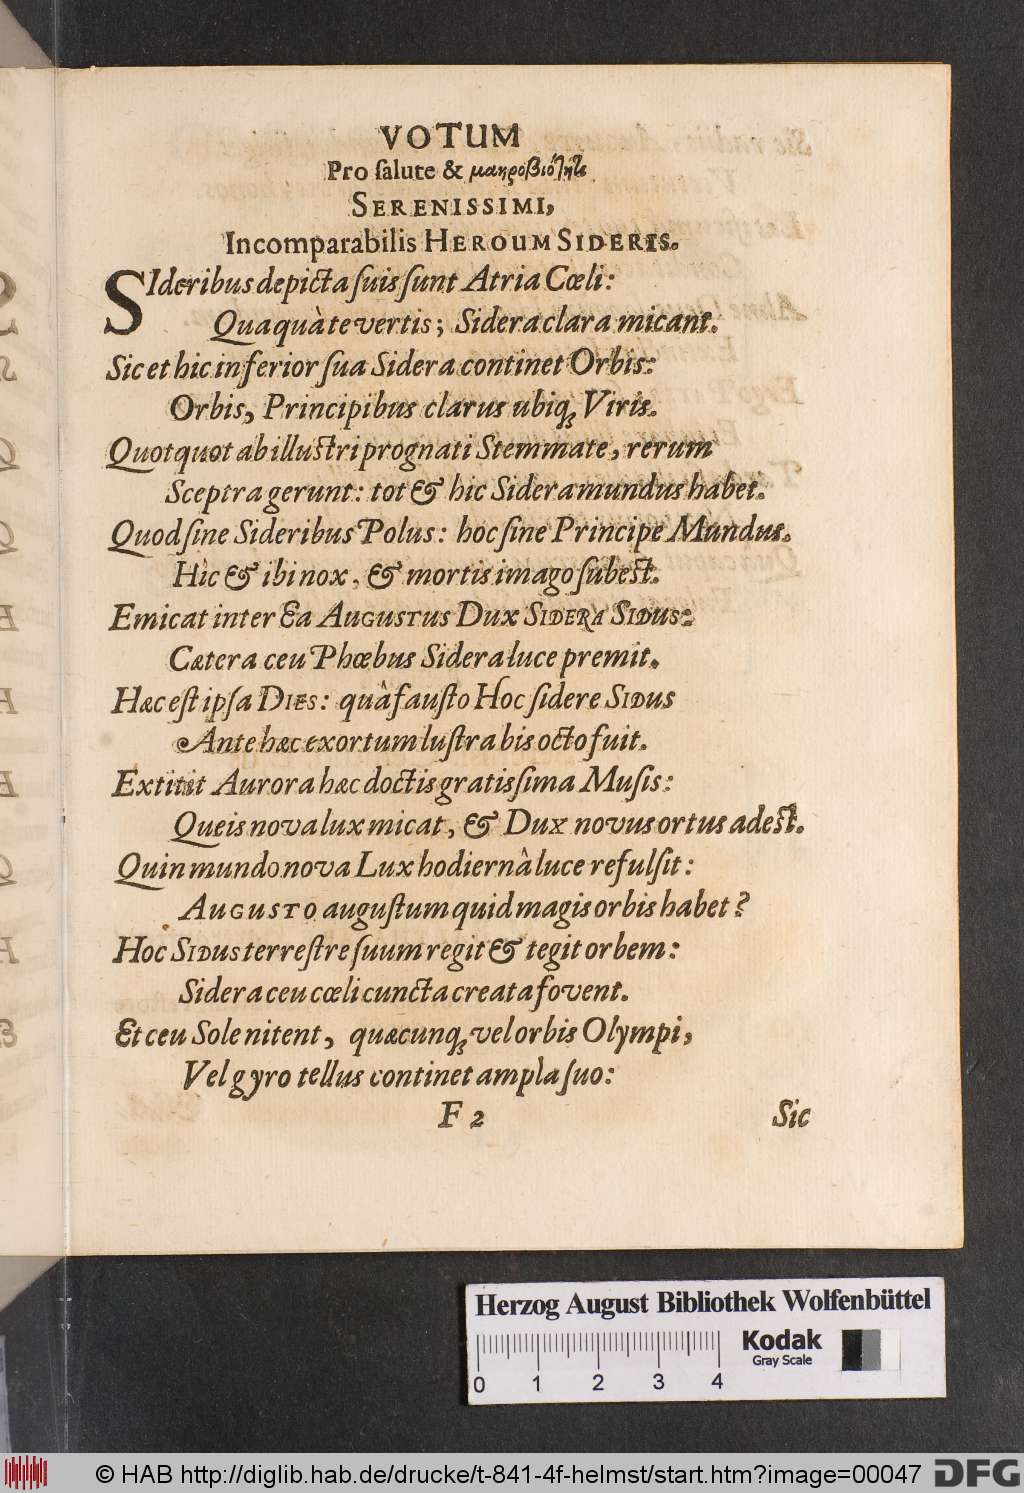 VOTUM
Pro ſalute & μακροβιότητι
SERENISSIMI,
Incomparabilis HEROUM SIDERIS.
SIderibus depicta ſuis ſunt Atria Cœli:
Quaquà te vertis; Sidera clara micant.
Sic et hic inferior ſua Sidera continet Orbis:
Orbis, Principibus clarus ubiq; Viris.
Quotquot ab illustri prognati Stemmate, rerum
Sceptra gerunt: tot & hic Sidera mundus habet.
Quod ſine Sideribus Polus: hoc ſine Principe Mundus.
Hìc & ibi nox, & mortis imago ſubest.
Emicat inter Ea AUGUSTUS DUX SIDERA SIDUS:
Cætera ceu Phœbus Sidera luce premit.
Hæc eſt ipſa DIES: quâ fauſto Hoc ſidere SIDUS
Ante hæc exortum luſtra bis octo fuit.
Extitit Aurora hæc doctis gratisſima Muſis:
Queis nova lux micat, & DUX novus ortus adest.
Quin mundo nova Lux hodiernâ luce refulſit:
AUGUSTO auguſtum quid magis orbis habet?
Hoc SIDUS terreſtre ſuum regit & tegit orbem:
Sidera ceu cœli cuncta creata fovent.
Et ceu Sole nitent, quæcunq; vel orbis Olympi,
Vel gyro tellus continet ampla ſuo:
F 2 Sic
Herzog August Bibliothek Wolfenbüttel
Kodak
Gray Scale
0 1 2 3 4
© HAB http://diglib.hab.de/drucke/t-841-4f-helmst/start.htm?image=00047
DFG